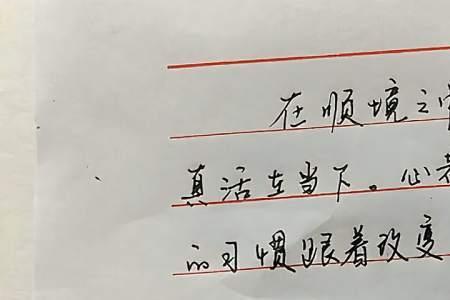 在顺境之
真活在当下。心若
的习惯跟着改变